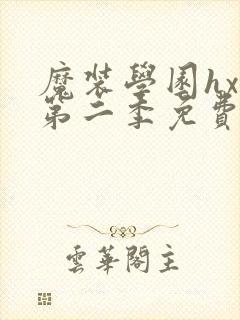 魔裝學園hx
第二季免費
雲華閣主